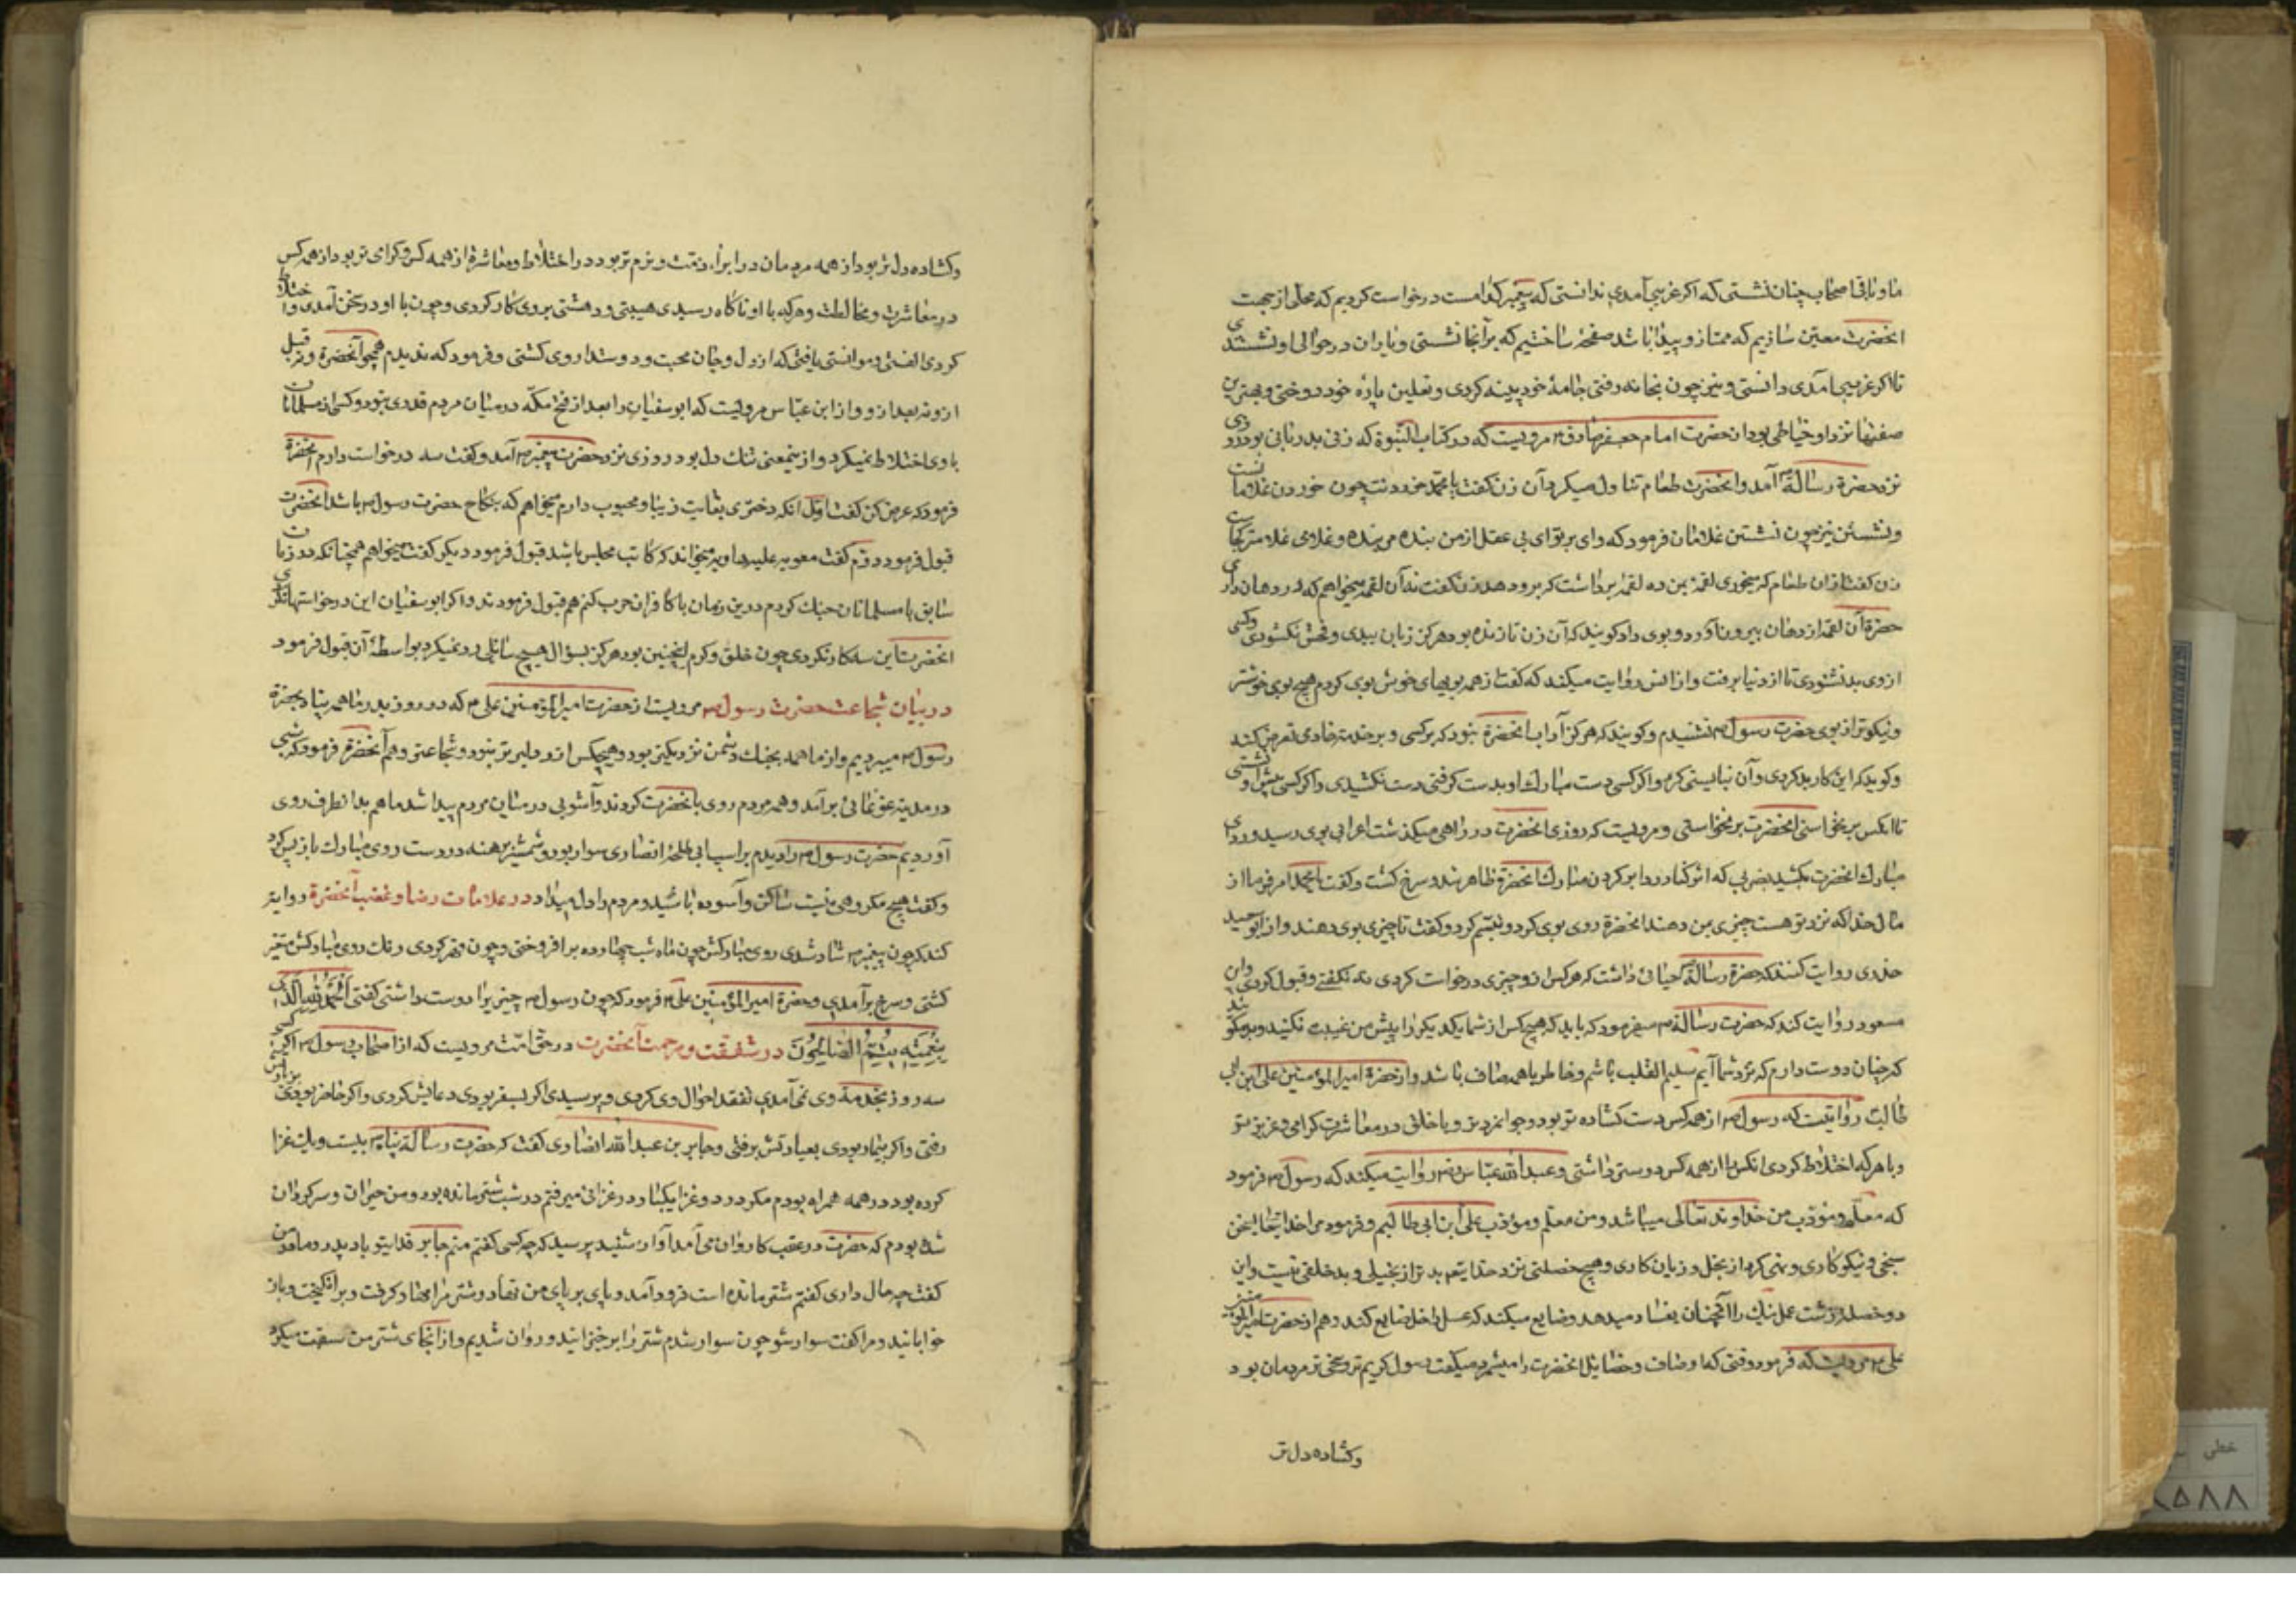 ما و باقی اصحاب چنان نشستی که اکر غریبی آمدی ندانستی که پیغمبر کدامست درخواست کردیم که محلی از جهت
انحضرت معین سازیم که ممتاز و پیدا باشد صفحهٔ ساختیم که بر آنجا نشستی و یاران در حوالی او نشستندی
تا اکر غریبی آمدی دانستی و نیز چون بخانه رفتی جامهٔ خود پینه کردی و نعلین پاره خود دوختی و بهترین
صفتها نزد او خیاطی بود از حضرت امام جعفر صادق م مرویست که در کتاب النبوة که زنی بدزبانی بود روزی
نزد حضرة رسالة آمد و انحضرت طعام تناول میکرد آن زن کفت یا محمد خوردنت چون خوردن غلامانست
و نشستن نیز چون نشستن غلامان فرمود که وای بر تو ای بی عقل از من بنده تر بنده و غلامی غلامتر کجاست
زن کفت ازان طعام که میخوری لقمهٔ بمن ده لقمهٔ برداشت که برو دهد زن کفت نه آن لقمه میخواهم که در دهان داری
حضرة آن لقمه از دهان بیرون آورد و بوی داد کویند که آن زن تا زنده بود هرکز زبان ببدی و فحش نکشودی و کسی
ازوی بد نشنودی تا از دنیا برفت و از انس روایت میکند که کفت از همه بویهای خوش بوی کردم هیچ بوی خوشتر
و نیکوتر از بوی حضرت رسول م نشنیدم و کویند که هرکز آداب انحضرة نبود که بر کسی و بر خدمت خادی تعرض کند
و کوید که این کار بد کردی و آن نبایستی کرد و اکر کسی دست مبارك او بدست کرفتی دست نکشیدی و اکر کسی پیش او نشستی
تا انکس برنخواستی انحضرت برنخواستی و مرویست که روزی انحضرت در راهی میکذشت اعرابی بوی رسید و ردای
مبارك انحضرت بکشید بضربی که اثر کنار ردا بر کردن مبارك انحضرة ظاهر شد و سرخ کشت و کفت یا محمد امر فرما از
مال خدا که نزد تو هست چیزی بمن دهند انحضرة روی بوی کرد و تبسم کرد و کفت تا چیزی بوی دهند و از ابو سعید
خدری روایت کنند که حضرة رسالة م حیائی داشت که هرکس ازو چیزی درخواست کردی نه نکفتی و قبول کردی و ابن
مسعود روایت کند که حضرت رسالة م میفرمود که باید که هیچ کس از شما یکدیکر را پیش من غیبت نکنید و بد مکوئید
که چنان دوست دارم که نزد شما آیم سلیم القلب باشم و خاطر با همه صاف باشد و از حضرة امیر المؤمنین علی ابن ابی
طالب روایتست که رسول م از همه کس دست کشاده تر بود و جوانمردتر و با خلق در معاشرت کرامی و عزیز تر
و با هرکه اختلاط کردی انکس را از همه کس دوستر داشتی و عبدالله عباس رض روایت میکند که رسول م فرمود
که معلم و مؤذب من خداوند تعالی میباشد و من معلم و مؤذب علی ابن ابی طالبم و فرمود مرا خدایتعا
سخی و نیکو کاری و نهی کرد از بخل و زیان کاری و هیچ خصلتی نزد خدایتعم بدتر از بخیلی و بد خلقی نیست و این
دو خصلة زشت عمل نیك را آنچنان بفساد میدهد و ضایع میکند که عسل را خل ضایع کند و هم از حضرت امیر المؤمنین
علی م مرویست که فرمود وقتی که اوصاف و خصایل انحضرت را میشمرد میکفت رسول کریم تر و سخی تر مردمان بود
وکشاده دل تر
وکشاده دل تر بود از همه مردمان در ابراء ذمت و نرم تر بود در اختلاط و معاشرة از همه کس و کرامی تر بود از همه کس
در معاشرت و مخالطت و هرکه با او ناکاه رسیدی هیبتی و دهشتی بروی کار کردی و چون با او در سخن آمدی و اختلاط
کردی الفتی و موانستی یافتی که از دل و جان محبت و دوستدار وی کشتی و فرمود که ندیدم همچو آنحضرة و نه قبل
ازو نه بعد ازو و از ابن عباس مرویست که ابو سفیان را بعد از فتح مکه در میان مردم قدری نبود و کسی از مسلمانان
با وی اختلاط نمیکرد و از ینمعنی تنك دل بود روزی نزد حضرت پیغمبر م آمد و کفت سه درخواست دارم انحضرة
فرمود که عرض کن کفت اول انکه دختری بغایت زیبا و محبوب دارم میخواهم که بنکاح حضرت رسول م باشد انحضرت
قبول فرمود دوم کفت معویه علیه ماویه میخواند که کاتب مجلس باشد قبول فرمود دیکر کفت میخواهم همچنانکه در زمان
سابق با مسلمانان جنك کردم درین زمان با کافران حرب کنم هم قبول فرمودند و اکر ابو سفیان این درخواستها نکردی
انحضرت این سه کار نکردی چون خلق و کرم اینچنین بود هرکز بسؤال هیچ سائلی رد نمیکرد بواسطهٔ آن قبول فرمود
در بیان شجاعت حضرت رسول م مرویست از حضرت امیر المؤمنین علی م که در روز بدر ما همه پناه بحضرة
رسول م میبردیم و از ما همه بجنك دشمن نزدیکتر بود و هیچکس ازو دلیر تر نبود و شجاعتر و هم آنحضرة فرمود که شبی
در مدینه غوغائی برآمد و همه مردم روی بانحضرت کردند و آشوبی در میان مردم پیدا شد ما هم بدانطرف روی
آوردیم حضرت رسول م را دیدم بر اسپ ابی طلحهٔ انصاری سوار بود و شمشیر برهنه در دست روی مبارك باز پس کرد
و کفت هیچ مکروهی نیست ساکن و آسوده باشید و مردم را دل میداد در علامات رضا و غضب آنحضرة روایة
کنند که چون پیغمبر م شاد شدی روی مبارکش چون ماه شب چهارده بر افروختی و چون قهر کردی رنك روی مبارکش متغیر
کشتی و سرخ برآمدی و حضرة امیر المؤمنین علی م فرمود که چون رسول م چیزیرا دوست داشتی کفتی اَلْحَمْدُ لِلّٰهِ الَّذی
بِنِعْمَتِه یَتِمُّ الصَّالِحُونَ در شفقت و مرحمت آنحضرت در حق امت مرویست که از اصحاب رسول م اکر کسی
سه روز بخدمة وی نمی آمدی تفقد احوال وی کردی و پرسیدی اکر بسفر بودی دعایش کردی و اکر حاضر بودی بزیارتش
رفتی و اکر بیمار بودی بعیادتش برفتی و جابر بن عبد الله انصاری کفت که حضرت رسالة پناه م بیست ویك غزا
کرده بود در همه همراه بودم مکر در دو غزا یکبار در غزائی میرفتم در شب شترم مانده بود و من حیران و سرکردان
شده بودم که حضرت در عقب کاروان می آمد آواز شنید پرسید که چه کسی کفتم منم جابر فدای تو باد پدر و مادر من
کفت چه حال داری کفتم شتر مانده است فرود آمد و پای بر پای من نهاد و شتر مرا مهار کرفت و بر انکیخت و باز
خوابانید و مرا کفت سوار شو چون سوار شدم شتر را بر خیزانید و روان شدیم و از انجای شتر من سبقت میکرد
خطی
۸۵۸۸